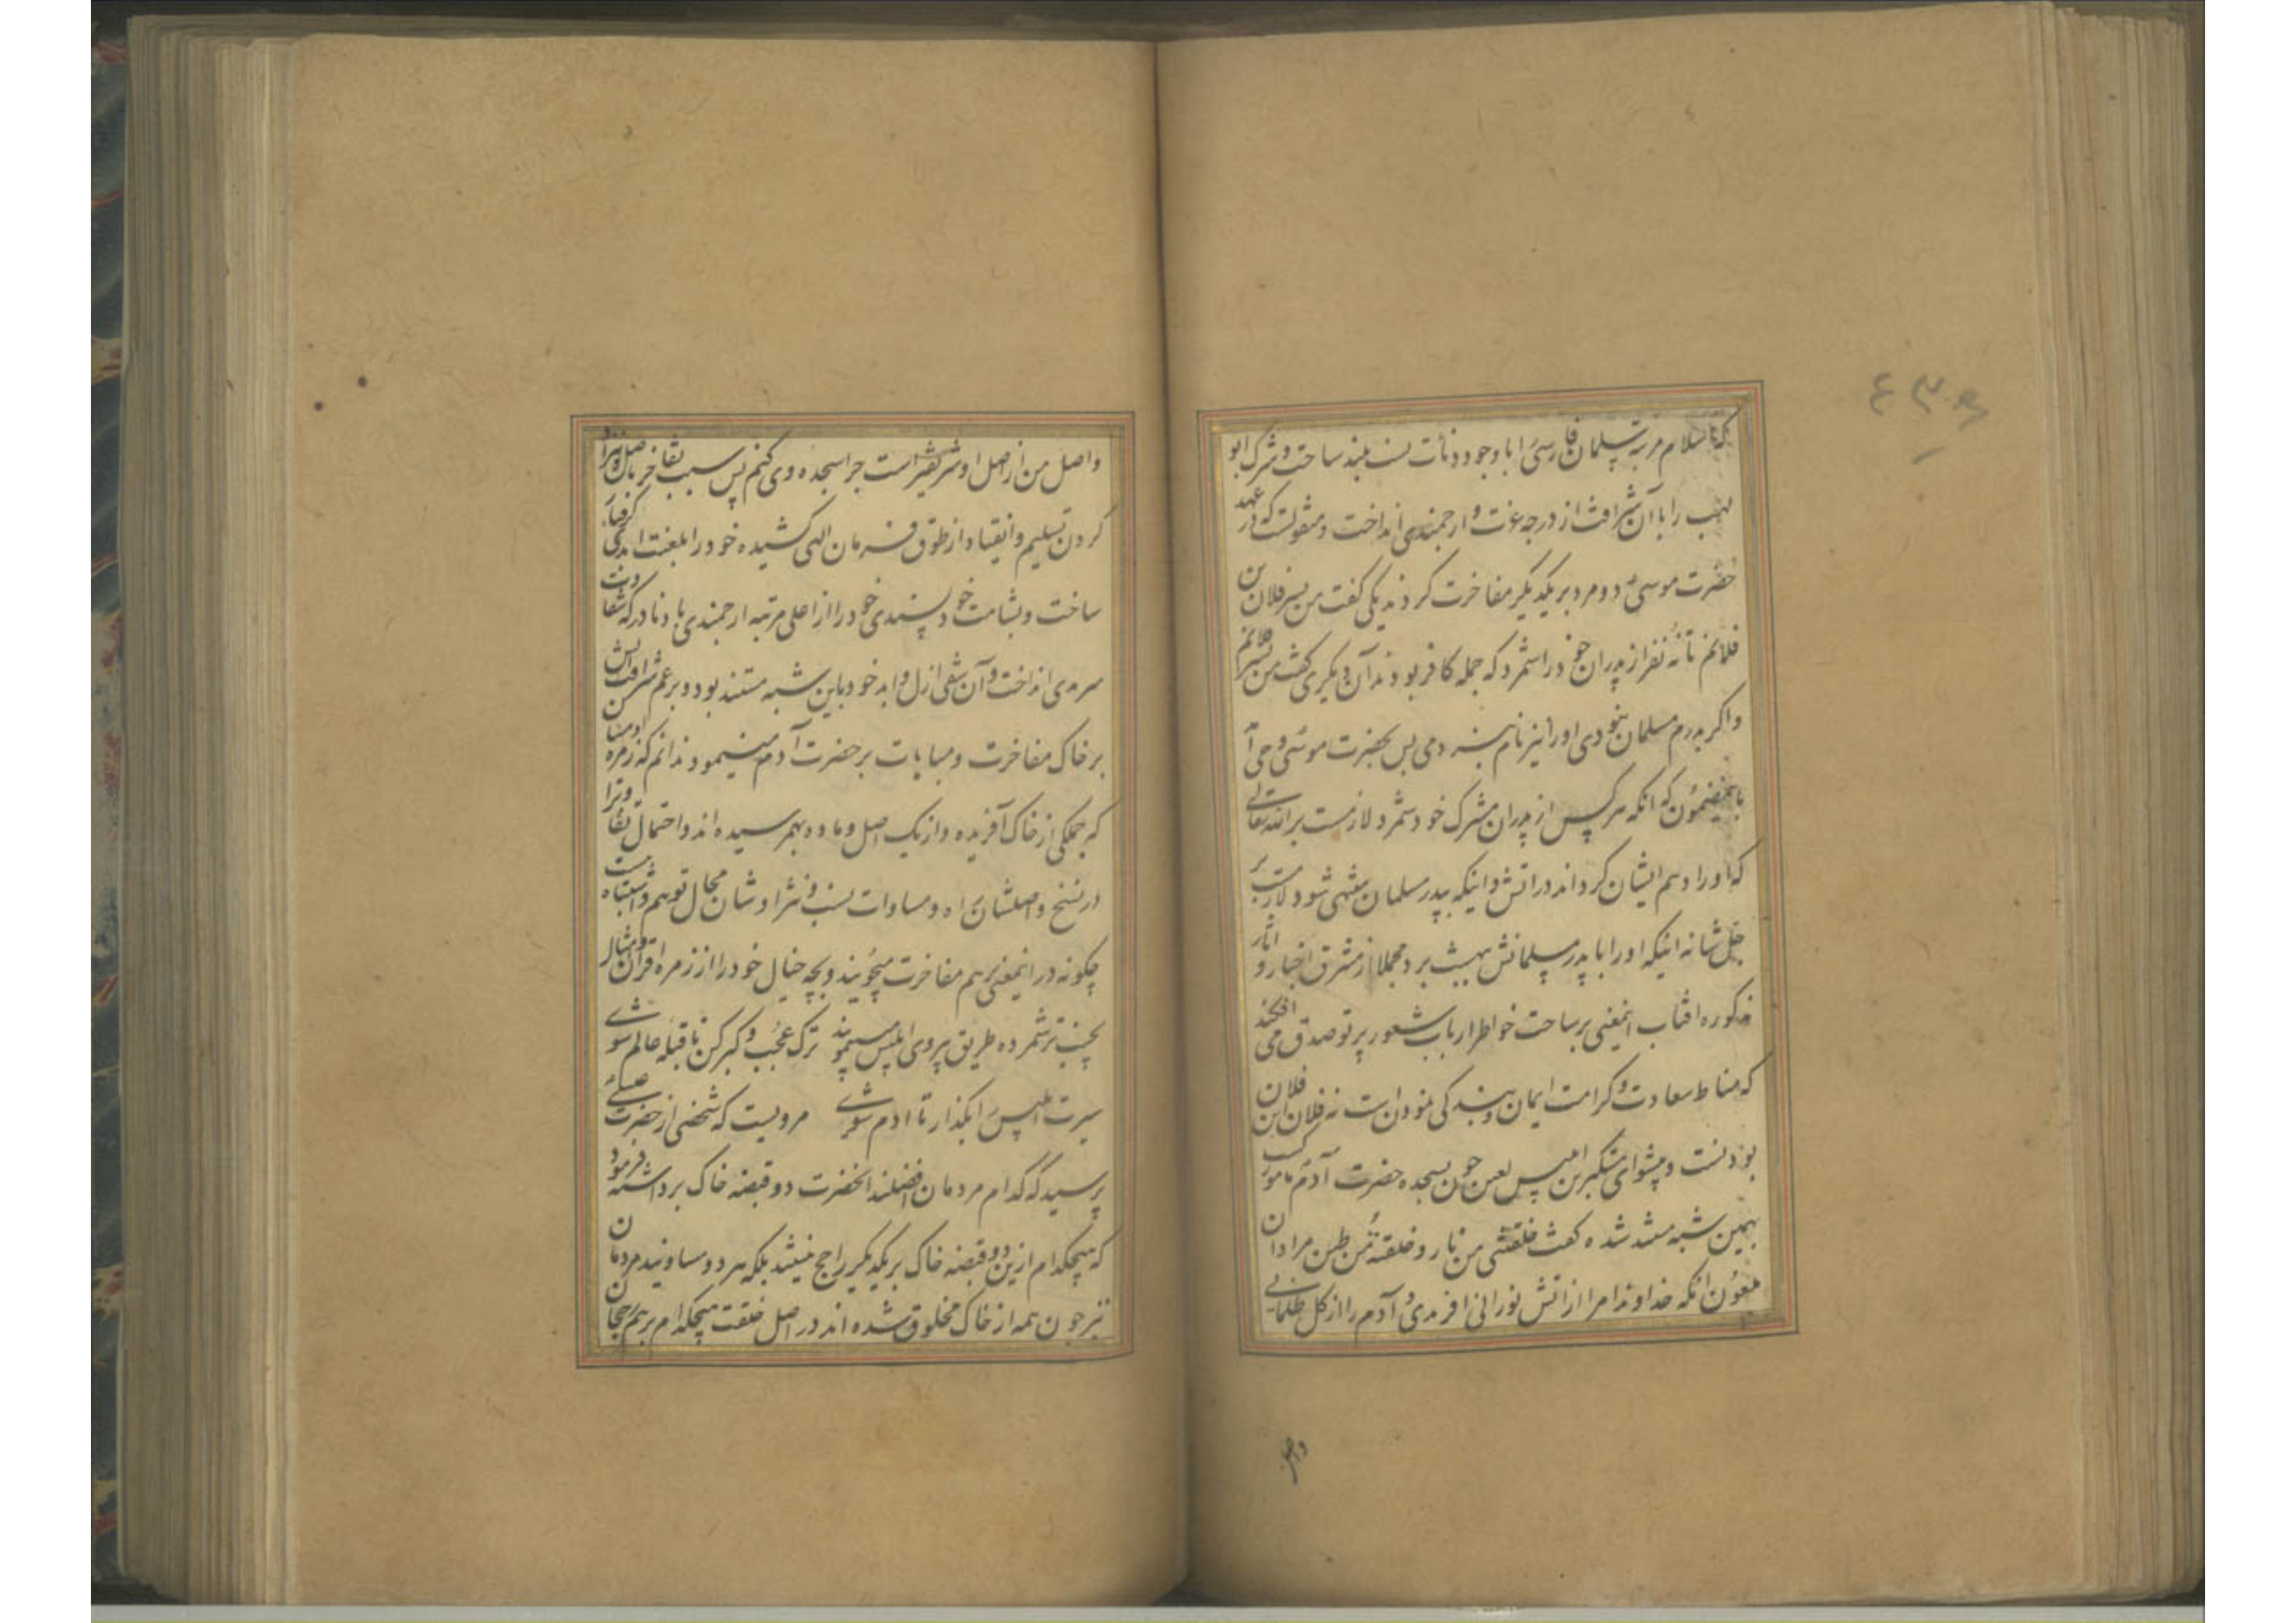 که اسلام مرتبه سلمان فارسی را با وجود دنائت نسب بلند ساخت و شرک ابو
لهب را با آن شرافت از درجه عزت و ارجمندی انداخت و منقولست که در عهد
حضرت موسی ع دو مرد بر یکدیگر مفاخرت کردند یکی گفت من پسر فلان بن
فلانم تا نه نفر از پدران خود را شمرد که جمله کافر بودند آن دیگری گفت من پسر فلانم
و اگر پدرم مسلمان نبودی او را نیز نام نبردمی پس بحضرت موسی وحی آمد
باینمضمون که انکه هر کس از پدران مشرک خود شمرد لازمست بر الله تعالی
که او را دهم ایشان کرداند در اتش و اینکه بپدر مسلمان منتهی شود لازمست بر
جل شانه اینکه او را با پدر مسلمانش ببهشت برد مجملا از مشرق اخبار و اثار
مذکوره افتاب اینمعنی بر ساحت خواطر ارباب شعور پرتو صدق می افکند
که مناط سعادت و کرامت ایمان و بندکی نمودن است نه فلان ابن فلان
بودنست و پیشوای متکبرین ابلیس لعین چون بسجده حضرت آدم مامور
بهمین شبه مستند شده کفت خلقتنی من نار و خلقته من طین مراد ان
ملعون انکه خداوندا مرا از اتش نورانی افریدی و آدم را از کل ظلمانی
و اصل
٤٣٥
و اصل من از اصل او شریفتر است چرا سجده وی کنم پس بسبب تفاخر باصل و نژاد
کردن تسلیم و انقیاد از طوق فرمان الهی کشیده خود را بلعنت ابدی گرفتار
ساخت و بشامت خودپسندی خود را از اعلی مرتبه ارجمندی با دنا درکه شقاوت
سرمدی انداخت و آن شقی ازل و ابد خود باین شبه مستند بود و بر عم شرافت اتش
بر خاک مفاخرت و مباهات بر حضرت آدم مینمود ندانم که زمره
که جملکی از خاک آفریده و از یک اصل و ماده بهم رسیده اند و احتمال تفاوت را
در نسخ و اصلشان راه و مساوات نسب و نژادشان مجال توهم و اشتباه
چکونه در اینمعنی بر هم مفاخرت میجویند و بچه خیال خود را از زمره اقران و امثال
نجیب تر شمرده طریق پیروی ابلیس میپویند ترک عجب و کبر کن تا قبله عالم شوی
سیرت ابلیس را بکذار تا ادم شوی مرویست که شخصی از حضرت عیسی
پرسید که کدام مردمان افضلند انحضرت دو قبضه خاک برداشته فرمود
که هیچکدام ازین دو قبضه خاک بر یکدیگر راجح نیستند بلکه هر دو مساویند مردمان
نیز چون همه از خاک مخلوق شده اند در اصل خلقت هیچکدام بر هم رجحان